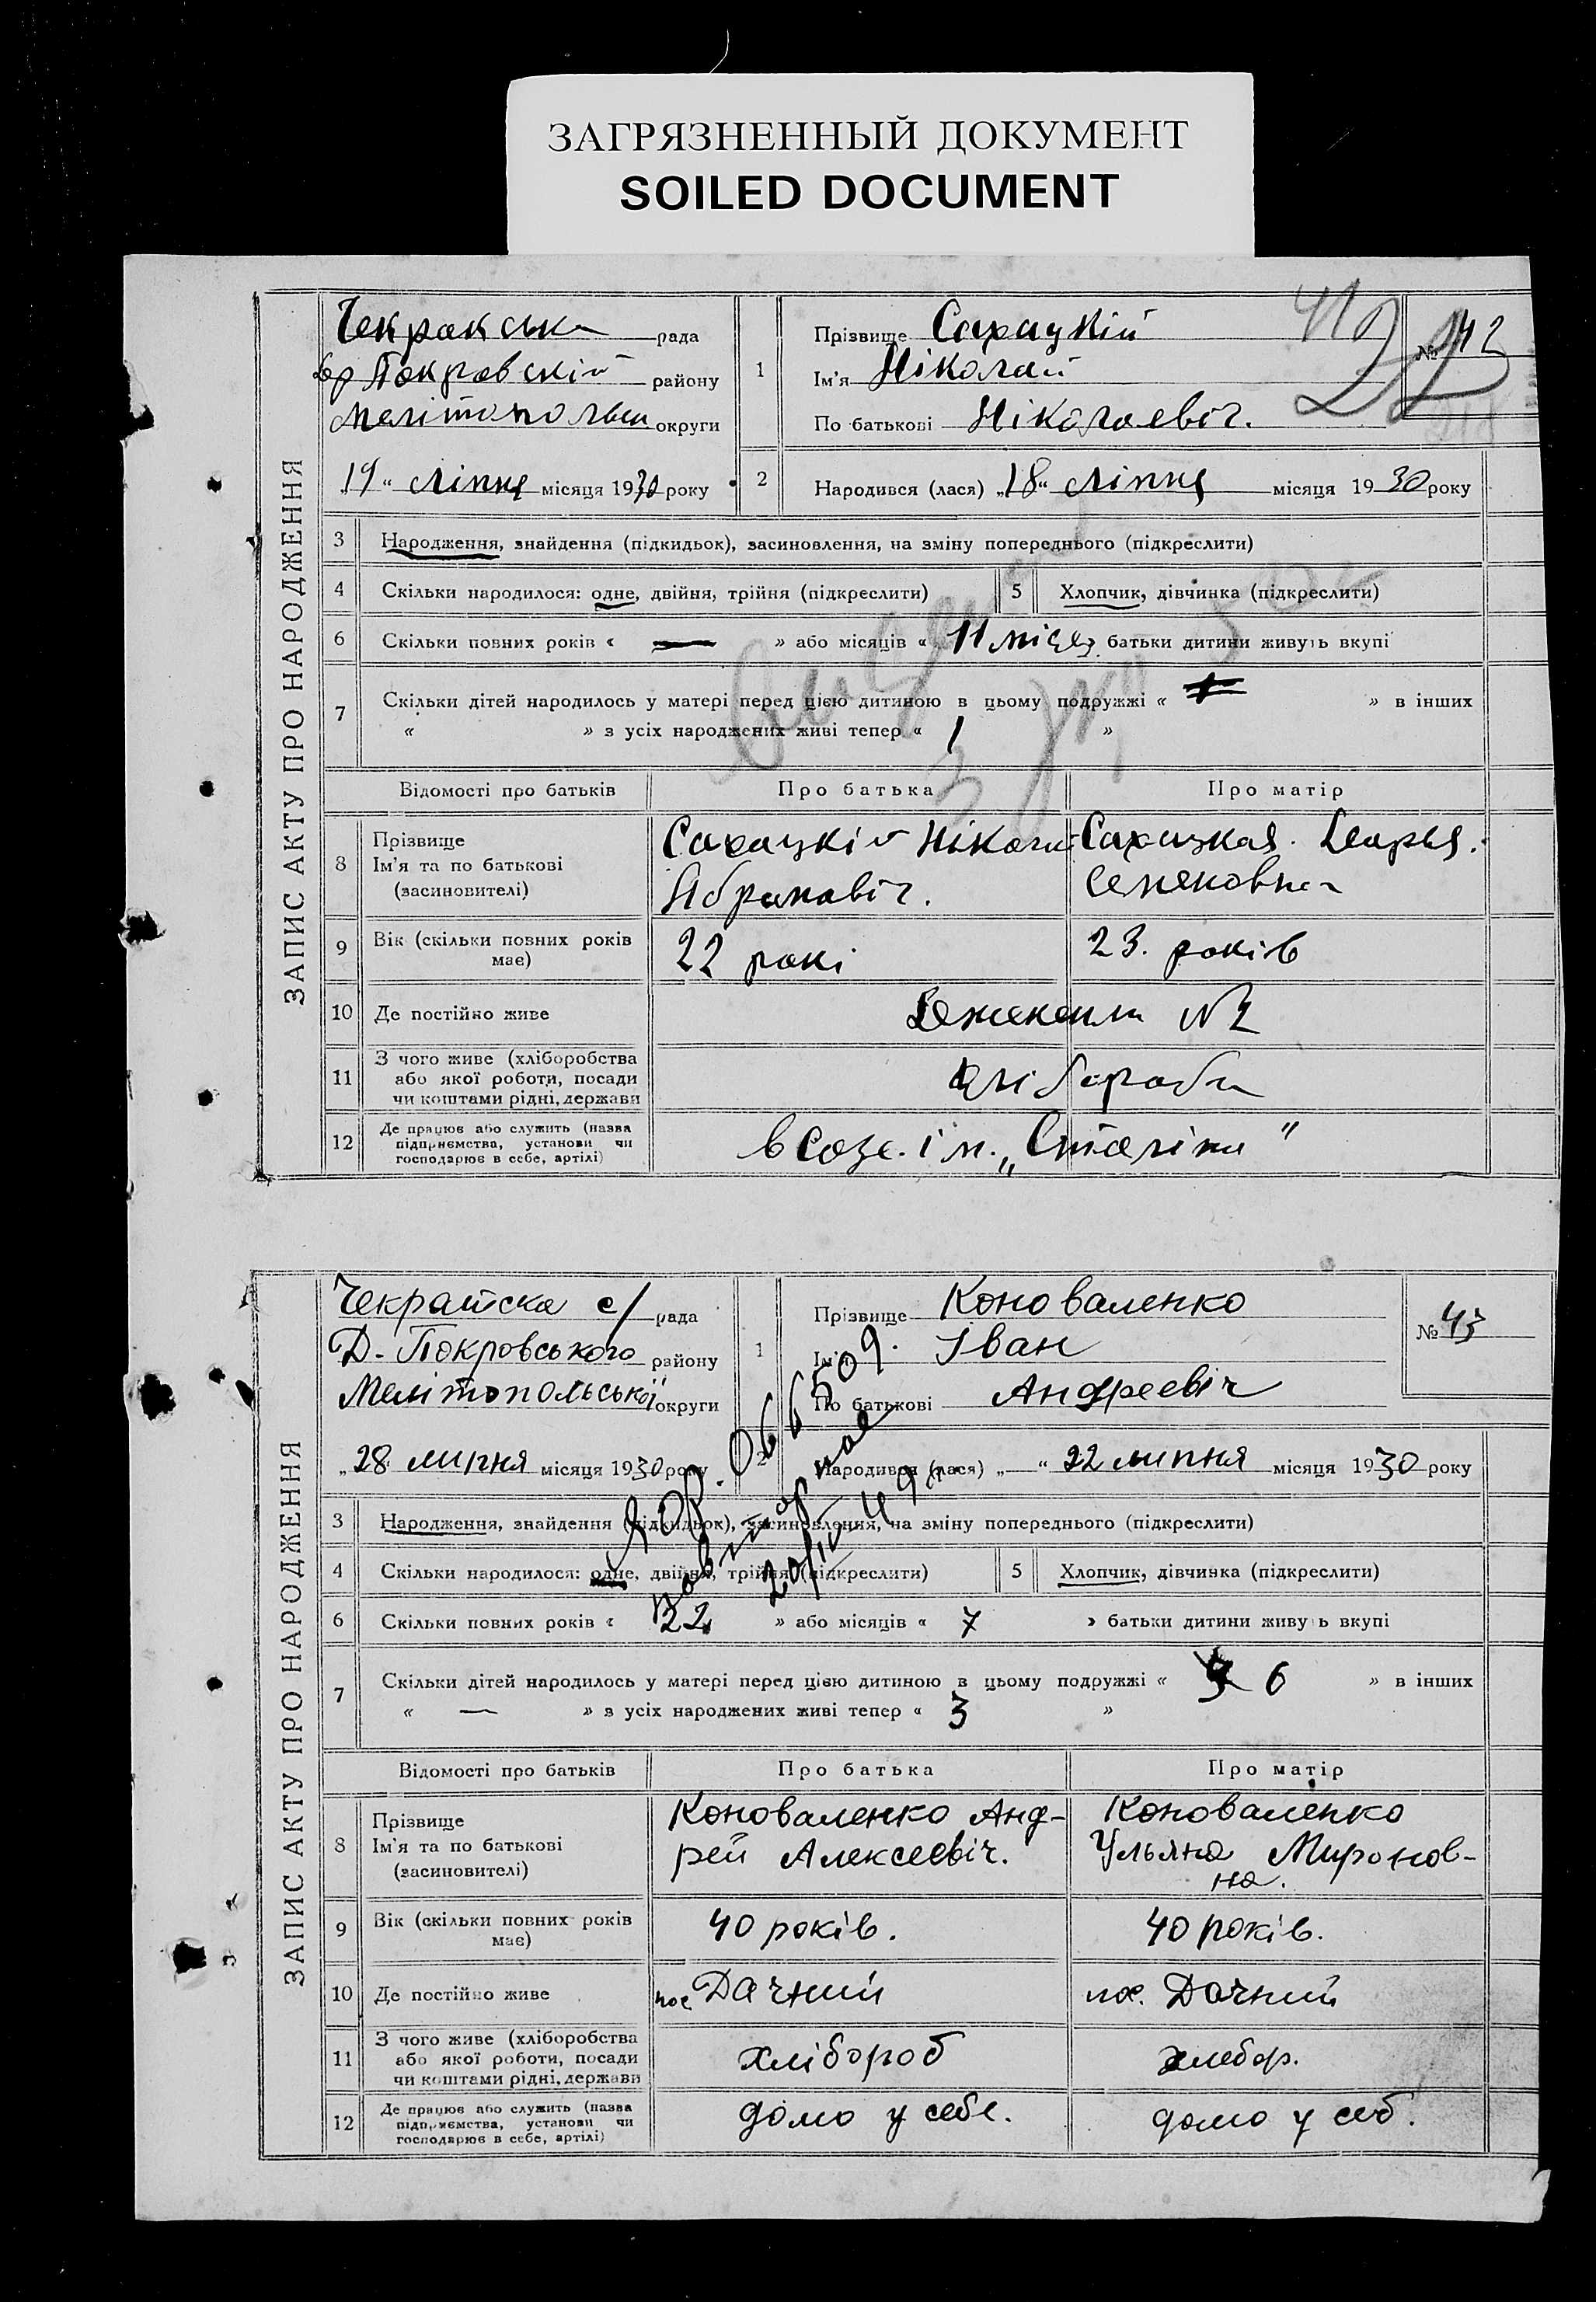 ЗАГРЯЗНЕННЫЙ ДОКУМЕНТ
SOILED DOCUMENT
ЗАПИС АКТУ ПРО НАРОДЖЕННЯ
Чекракська рада
Покровскій району
округи
19 ліпня місяця 1930 року
1
Прізвище Сахацкій
Ім'я Ніколай
По батькові Ніколаевіч.
№ 42
2
Народився (лася) „18“ ліпня місяця 1930 року
3 Народження, знайдення (підкидьок), засиновлення, на зміну попереднього (підкреслити)
4 Скільки народилося: одне, двійня, трійня (підкреслити)
5 Хлопчик, дівчинка (підкреслити)
6 Скільки повних років « — » або місяців « 11 батьки дитини живуть вкупі
7 Скільки дітей народилось у матері перед цією дитиною в цьому подружжі « » в інших
« » з усіх народжених живі тепер « 1 »
Відомості про батьків
Про батька
Про матір
8 Прізвище
Ім'я та по батькові
(засиновителі)
Сахацкій Нікола
Абрамовіч.
Сахацкая Марья.
Семеновна
9 Вік (скільки повних років
має)
22 рокі
23. років
10 Де постійно живе
№ 2
11 З чого живе (хліборобства
або якої роботи, посади
чи коштами рідні, держави
хлібороби
12 Де працює або служить (назва
підприємства, установи чи
господарює в себе, артілі)
в Созе. ім. „Сталіна"
ЗАПИС АКТУ ПРО НАРОДЖЕННЯ
с/ рада
Д-Покровського району
Мелітопольської округи
„28 липня місяця 1930 року
1
Прізвище Коноваленко
Ім'я Іван
По батькові Андреевіч
№ 43
2
Народився (лася) „—“ 22 липня місяця 1930 року
ЯОР. 066509.
повторное
20/IV-49г.
3 Народження, знайдення (підкидьок), засиновлення, на зміну попереднього (підкреслити)
4 Скільки народилося: одне, двійня, трійня (підкреслити)
5 Хлопчик, дівчинка (підкреслити)
6 Скільки повних років « 22 » або місяців « 7 » батьки дитини живуть вкупі
7 Скільки дітей народилось у матері перед цією дитиною в цьому подружжі « 6 » в інших
« — » з усіх народжених живі тепер « 3 »
Відомості про батьків
Про батька
Про матір
8 Прізвище
Ім'я та по батькові
(засиновителі)
Коноваленко Анд-
рей Алексеевіч.
Коноваленко
Ульяна Миронов-
на.
9 Вік (скільки повних років
має)
40 років.
40 років.
10 Де постійно живе
пос Дачний
пос. Дачний
11 З чого живе (хліборобства
або якої роботи, посади
чи коштами рідні, держави
хлібороб
хлебор.
12 Де працює або служить (назва
підприємства, установи чи
господарює в себе, артілі)
домо у себе.
домо у себ.